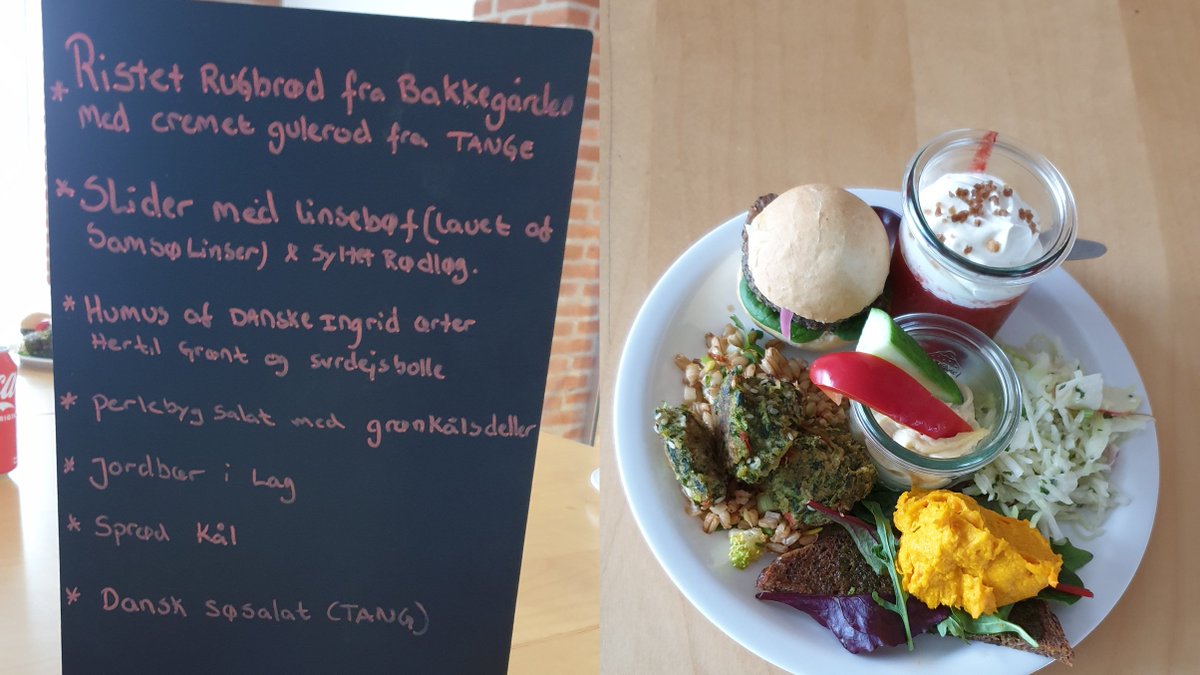 * Ristet Rugbrød fra Bakkegården
med cremet gulerod fra TANGE
* Slider med Linsebøf (lavet af
Samsø Linser) & Syltet Rødløg.
* Humus af DANSKE Ingrid ærter
Hertil Grønt og surdejsbolle
* perlebyg salat med grønkålsdeller
* Jordbær i Lag
* Sprød Kål
* Dansk søsalat (TANG)